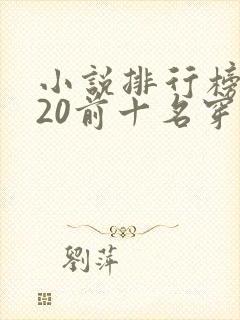 小說排行榜
20前十名穿
劉萍